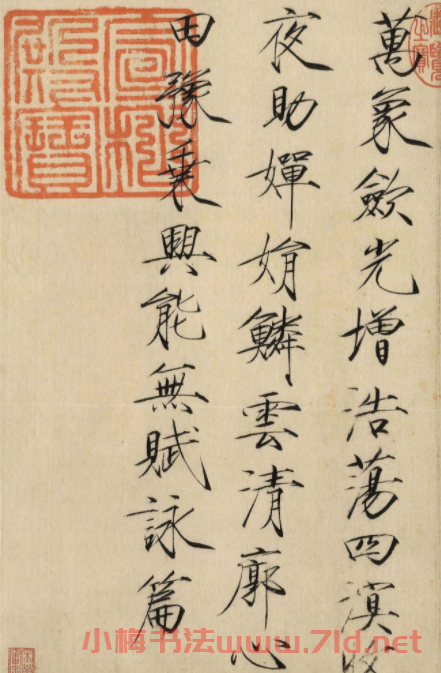 萬象歛光增浩蕩四溟收
夜助嬋娟鱗雲清廓心
田豫乗興能無賦詠篇
小梅书法www.7ld.net